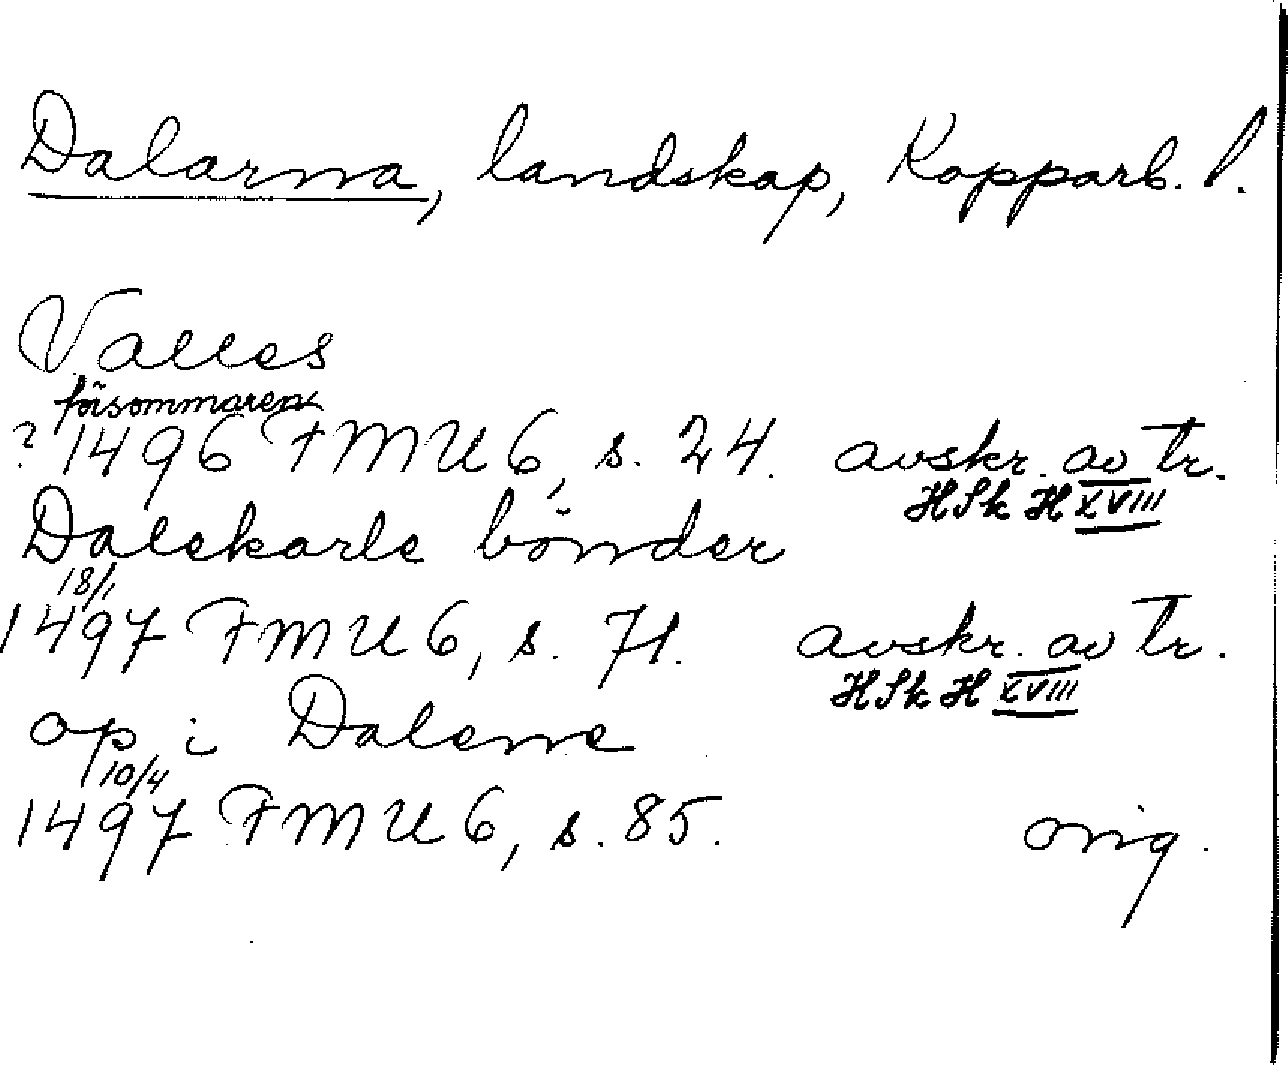 Dalarna, landskap, Kopparb. l.
Valles
försommaren
? 1496 FMU 6, s. 24. avskr. av tr.
HSk H XVIII
Dalekarle bönder
18/1
1497 FMU 6, s. 71. avskr. av tr.
HSk H XVIII
op i Dalene
10/4
1497 FMU 6, s. 85. orig.